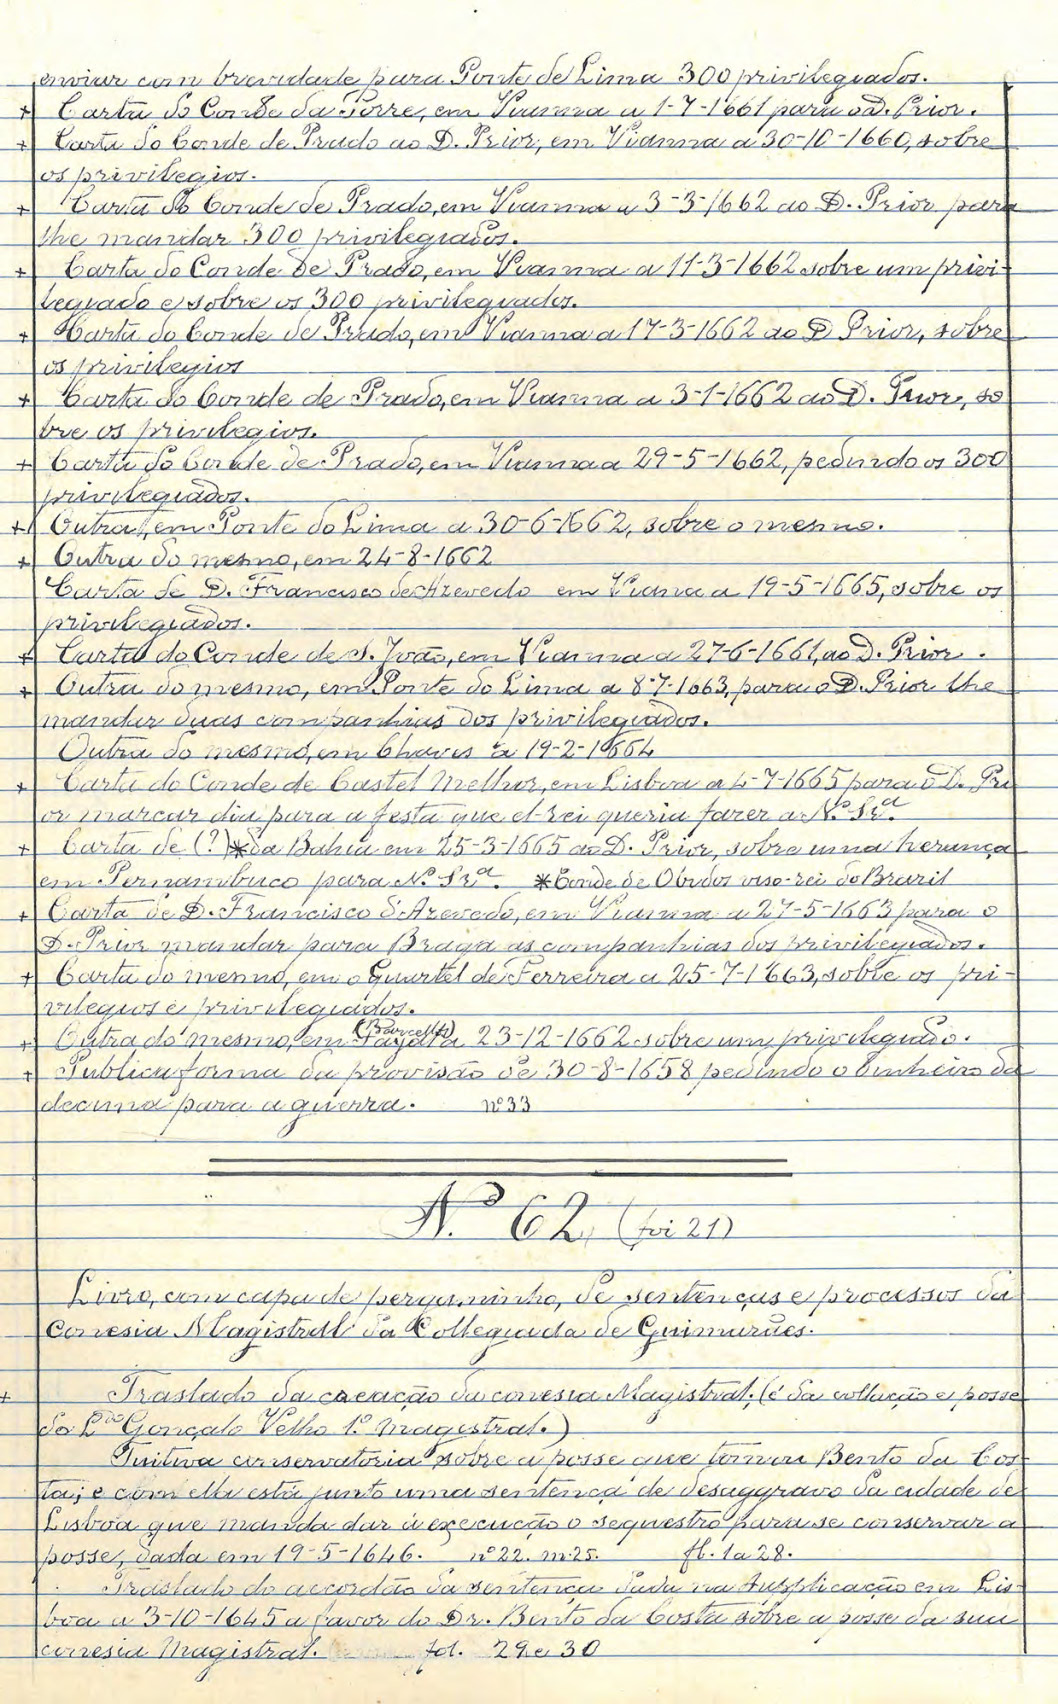 enviar com brevidade para Ponte de Lima 300 privilegiados.
+ Carta do Conde da Torre, em Vianna a 1-7-1661 para o D. Prior.
+ Carta do Conde de Prado ao D. Prior, em Vianna a 30-10-1660, sobre
os privilegios.
+ Carta do Conde de Prado, em Vianna a 3-3-1662 ao D. Prior para
lhe mandar 300 privilegiados.
+ Carta do Conde de Prado, em Vianna a 11-3-1662 sobre um privi-
legiado e sobre os 300 privilegiados.
+ Carta do Conde de Prado, em Vianna a 17-3-1662 ao D Prior, sobre
os privilegios
+ Carta do Conde de Prado, em Vianna a 3-1-1662 ao D. Prior, so
bre os privilegios.
+ Carta do Conde de Prado, em Vianna a 29-5-1662, pedindo os 300
privilegiados.
+ Outra, em Ponte do Lima a 30-6-1662, sobre o mesmo.
+ Outra do mesmo, em 24-8-1662
Carta de D. Francisco de Azevedo em Viana a 19-5-1665, sobre os
privilegiados.
+ Carta do Conde de S. João, em Vianna a 27-6-1661, ao D. Prior.
+ Outra do mesmo, em Ponte do Lima a 8-7-1663, para o D. Prior lhe
mandar duas companhias dos privilegiados.
Outra do mesmo, em Chaves a 19-2-1664
+ Carta do Conde de Castel Melhor, em Lisboa a 4-7-1665 para o D. Pri
or marcar dia para a festa que el-rei queria fazer a N.ª Sr.ª
+ Carta de (?)* da Bahia em 25-3-1665 ao D. Prior, sobre uma herança
em Pernambuco para N.ª Sr.ª. * Conde de Obidos viso-rei do Brazil
+ Carta de D. Francisco d'Azevedo, em Vianna a 27-5-1663 para o
D. Prior mandar para Braga as companhias dos privilegiados.
+ Carta do mesmo, em o Quartel de Ferreira a 25-7-1663, sobre os pri-
vilegios e privilegiados.
(Barcellos)
+ Outra do mesmo, em a 23-12-1662 sobre um privilegiado.
+ Publica forma da provisão de 30-8-1658 pedindo o dinheiro da
decima para a guerra. nº 33
N.º 62 (foi 21)
Livro, com capa de pergaminho, de sentenças e processos da
Conesia Magistral da Collegiada de Guimarães.
+ Traslado da creação da conesia Magistral, (é da collação e posse
do L.do Gonçalo Velho 1.º magistral.)
Tuitiva conservatoria sobre a posse que tomou Bento da Cos-
ta; e com ella está junto uma sentença de desaggravo da cidade de
Lisboa que manda dar à execução o sequestro para se conservar a
posse, dada em 19-5-1646. nº 22. m. 25. fl. 1 a 28.
Traslado do accordão da sentença dada na Supplicação em Lis-
boa a 3-10-1645 a favor do Dr. Bento da Costa sobre a posse da sua
conesia Magistral. fol. 29 e 30